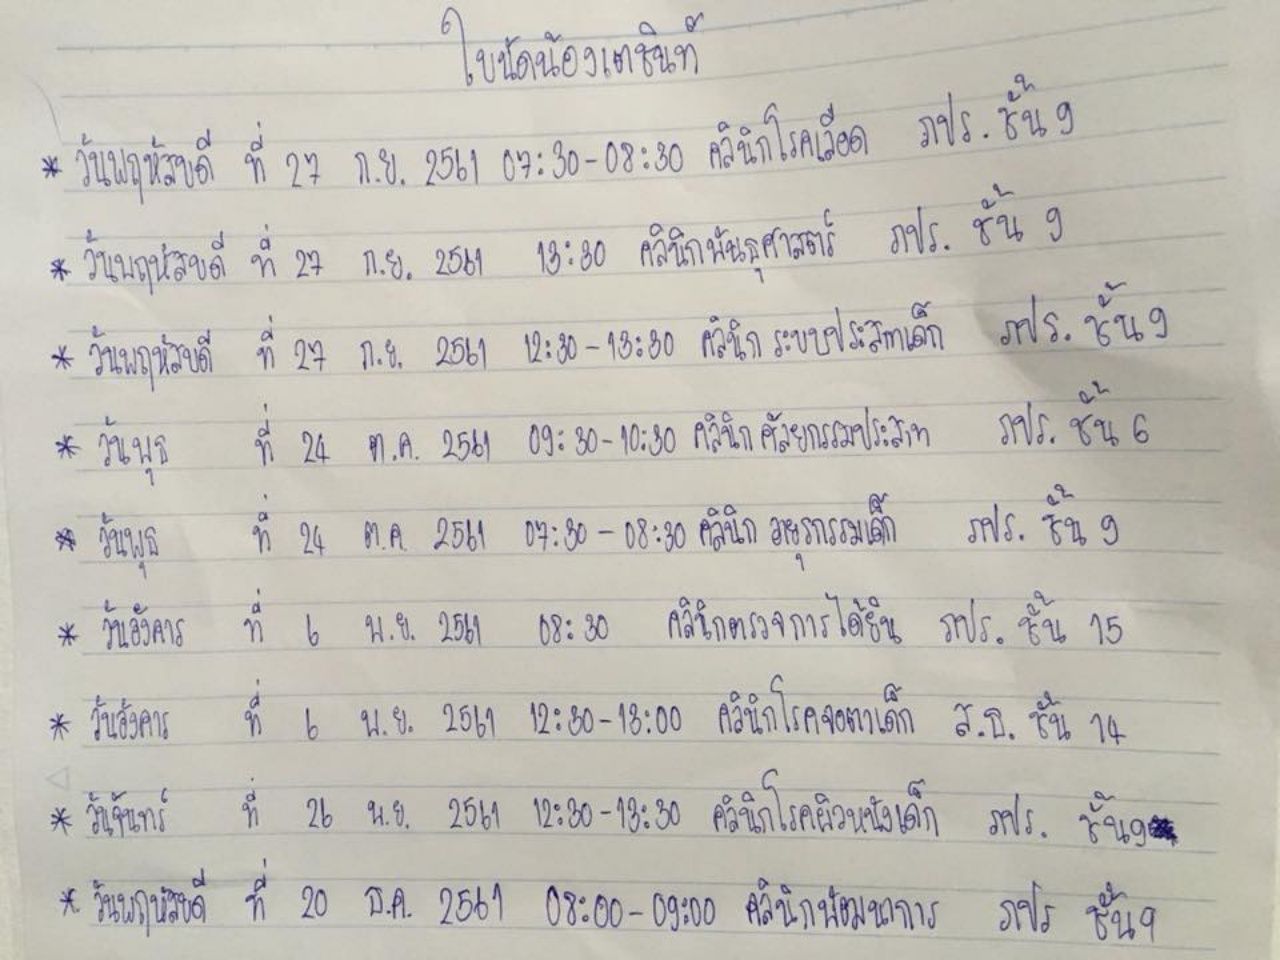 ใบนัดน้องเตชินท์
* วันพฤหัสบดี ที่ 27 ก.ย. 2561 07:30-08:30 คลินิกโรคเลือด ภปร. ชั้น 9
* วันพฤหัสบดี ที่ 27 ก.ย. 2561 13:30 คลินิกพันธุศาสตร์ ภปร. ชั้น 9
* วันพฤหัสบดี ที่ 27 ก.ย. 2561 12:30-13:30 คลินิก ระบบประสาทเด็ก ภปร. ชั้น 9
* วันพุธ ที่ 24 ต.ค. 2561 09:30-10:30 คลินิก ศัลยกรรมประสาท ภปร. ชั้น 6
* วันพุธ ที่ 24 ต.ค. 2561 07:30-08:30 คลินิก อายุรกรรมเด็ก ภปร. ชั้น 9
* วันอังคาร ที่ 6 พ.ย. 2561 08:30 คลินิกตรวจการได้ยิน ภปร. ชั้น 15
* วันอังคาร ที่ 6 พ.ย. 2561 12:30-13:00 คลินิกโรคจอตาเด็ก ส.ธ. ชั้น 14
* วันจันทร์ ที่ 26 พ.ย. 2561 12:30-13:30 คลินิกโรคผิวหนังเด็ก ภปร. ชั้น 9
* วันพฤหัสบดี ที่ 20 ธ.ค. 2561 08:00-09:00 คลินิกพัฒนาการ ภปร ชั้น 9